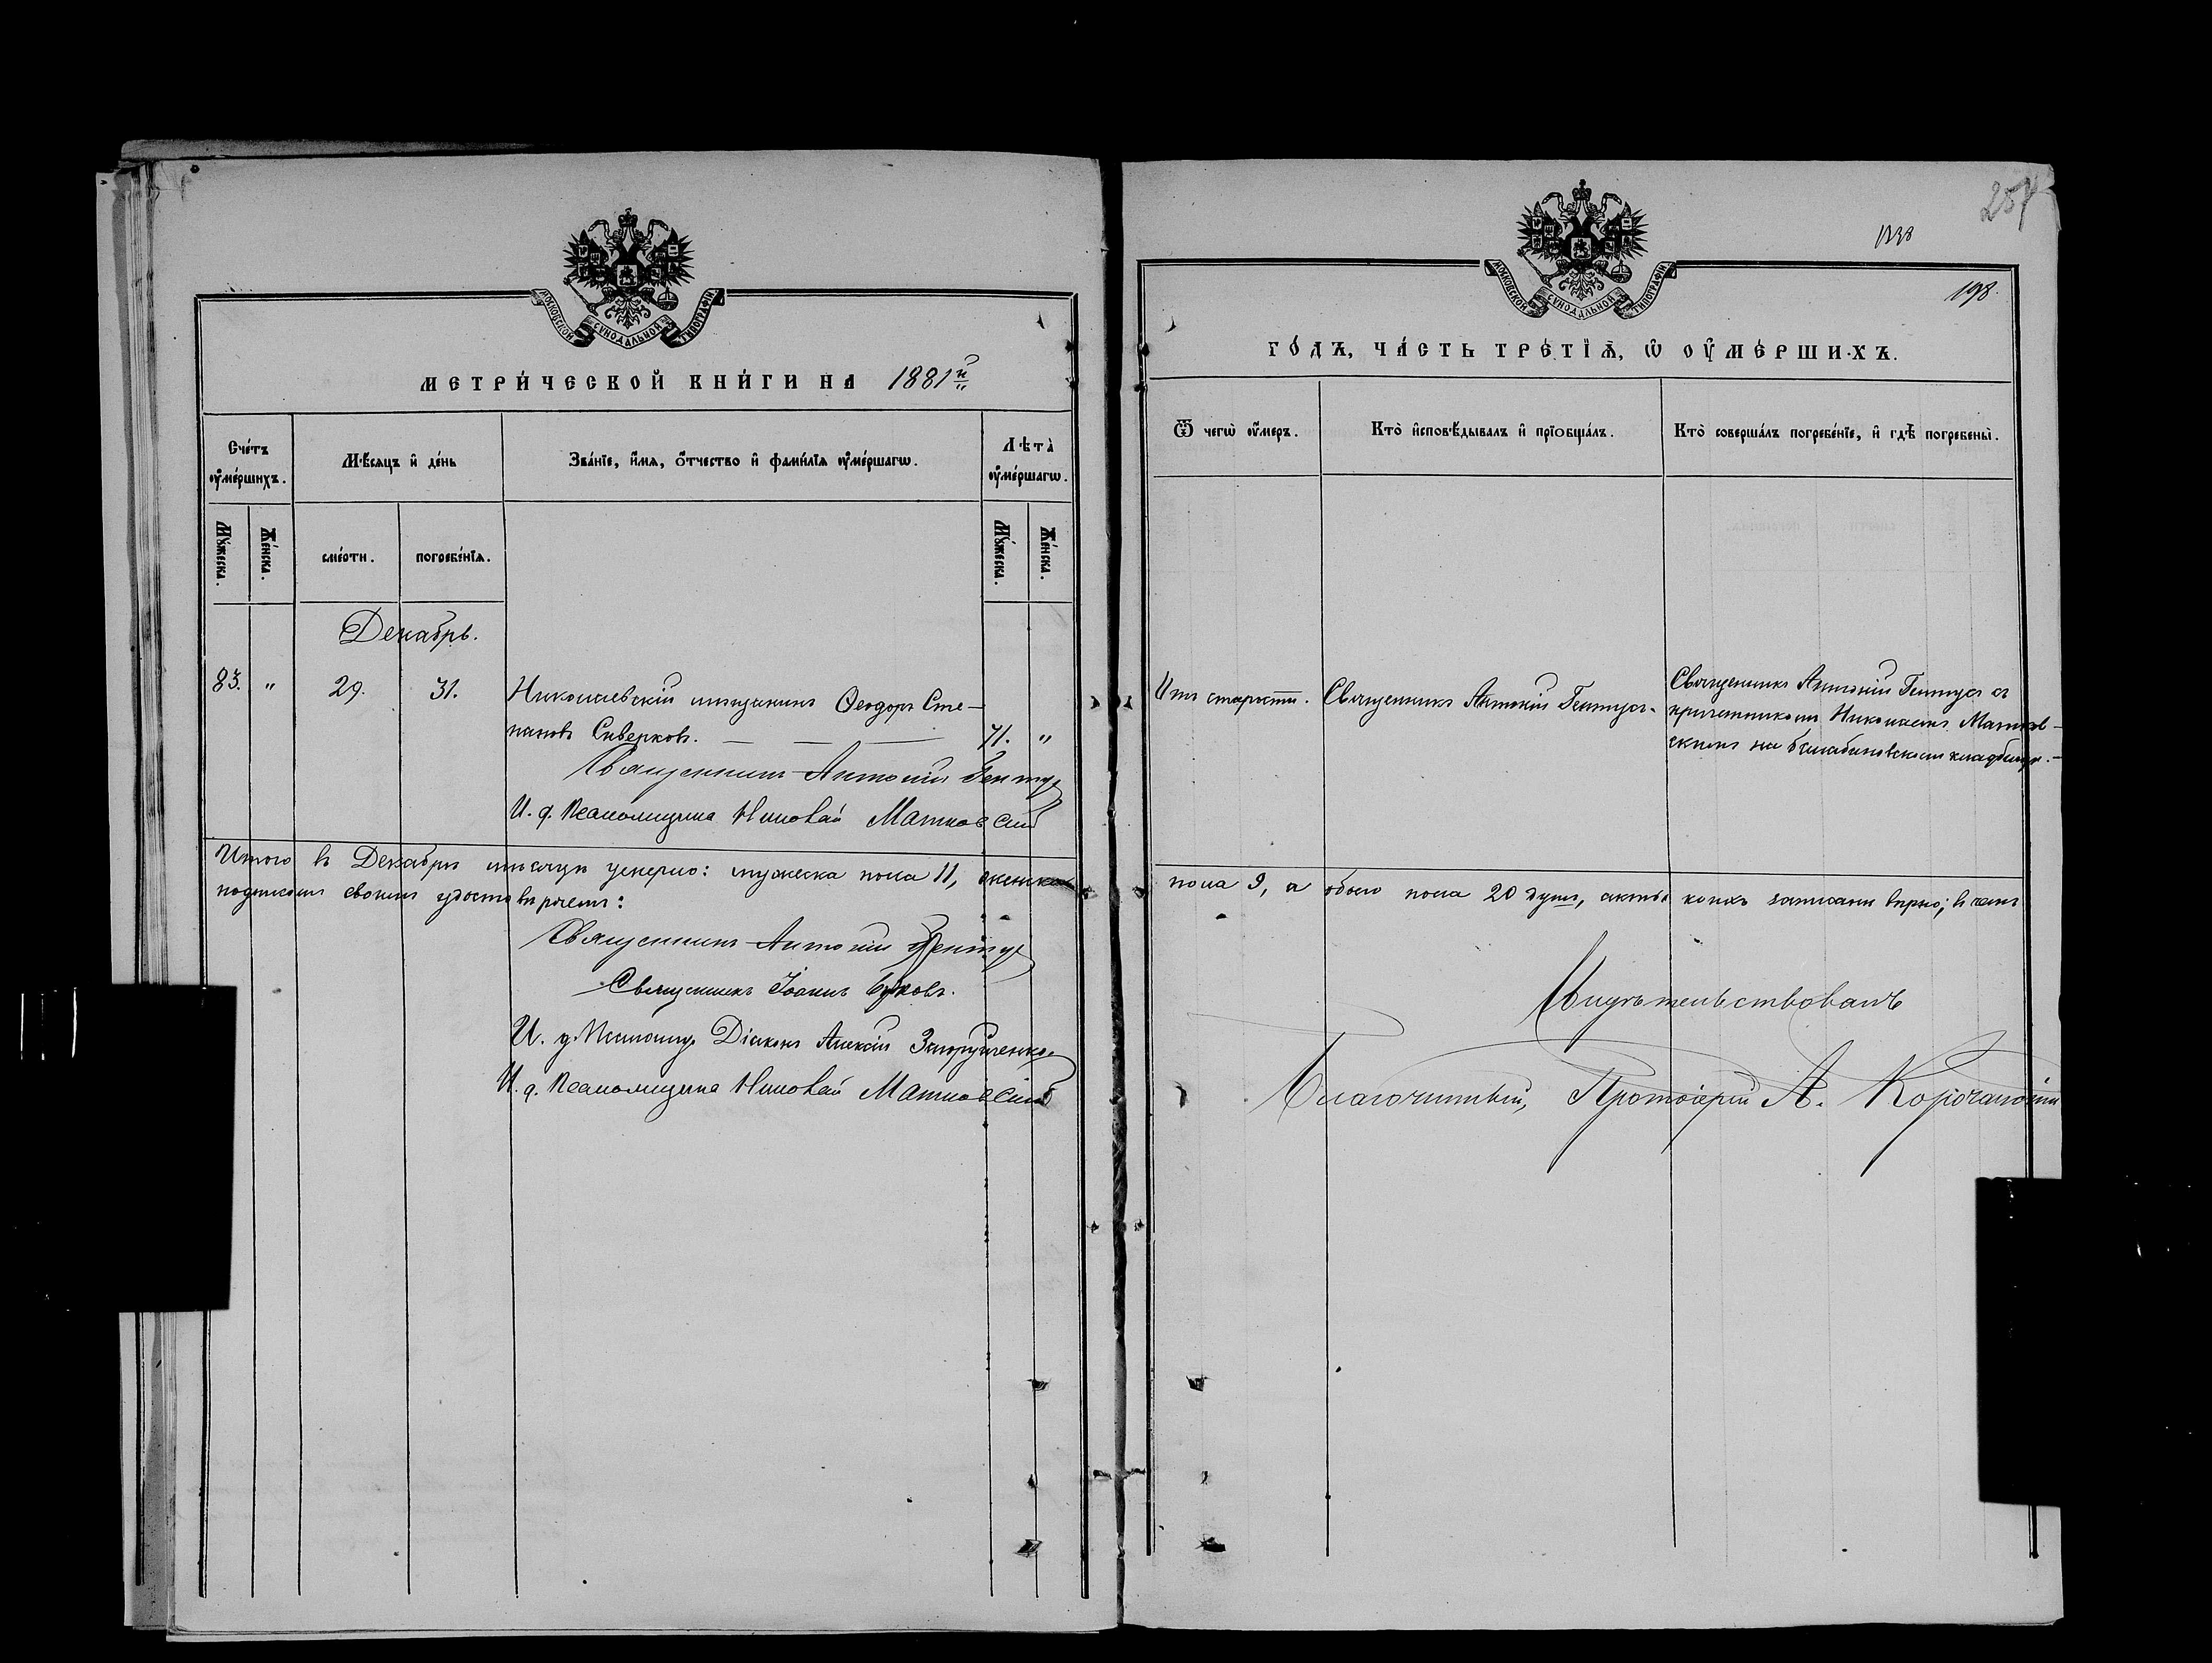 МОСКОВСКОЙ СѴНОДАЛЬНОЙ ТИПОГРАФІИ
МЕТРИ́ЧЕСКОЙ КНИ́ГИ НА 1881й
Сче́тъ ᲂу҆ме́ршихъ.
Мѣ́сяцъ и҆ де́нь
Зва́нїе, и҆́мѧ, ѻ҆́тчество и҆ фами́лїѧ ᲂу҆ме́ршагѡ.
Лѣта̀ ᲂу҆ме́ршагѡ.
Мꙋ́жеска.
Же́нска.
сме́рти.
погребе́нїѧ.
Мꙋ́жеска.
Же́нска.
Декабрь.
83. " 29. 31. Николаевскій мѣщанинъ Ѳеодоръ Сте-
пановъ Сиверковъ. — — — 71. "
Священникъ Антоній Гентуз
И. д. Псаломщика Николай Матковскій
Итого въ Декабрѣ мѣсяцѣ умерло: мужеска пола 11, женска
подписомъ своимъ удостовѣряемъ:
Священникъ Антоній
Священникъ Іоаннъ
И. д. Псаломщ. Діаконъ Алексій
И. д. Псаломщика Николай Матковскій
257
198.
МОСКОВСКОЙ СѴНОДАЛЬНОЙ ТИПОГРАФІИ
ГО́ДЪ, ЧА́СТЬ ТРЕ́ТЇѦ, Ѡ҆ ОУ҆МЕ́РШИХЪ.
Ѿ чегѡ̀ ᲂу҆́меръ.
Кто̀ и҆сповѣ́дывалъ и҆ прїобща́лъ.
Кто̀ соверша́лъ погребе́нїе, и҆ гдѣ̀ погребены̀.
Отъ старости.
Священникъ Антоній
Священникъ Антоній съ
причетникомъ Николаемъ Матков-
скимъ на кладбищѣ.
пола 9, а обоего пола 20 душъ, акты коихъ записаны вѣрно; въ чемъ
Свидѣтельствовалъ
Благочинный, Протоіерей А.